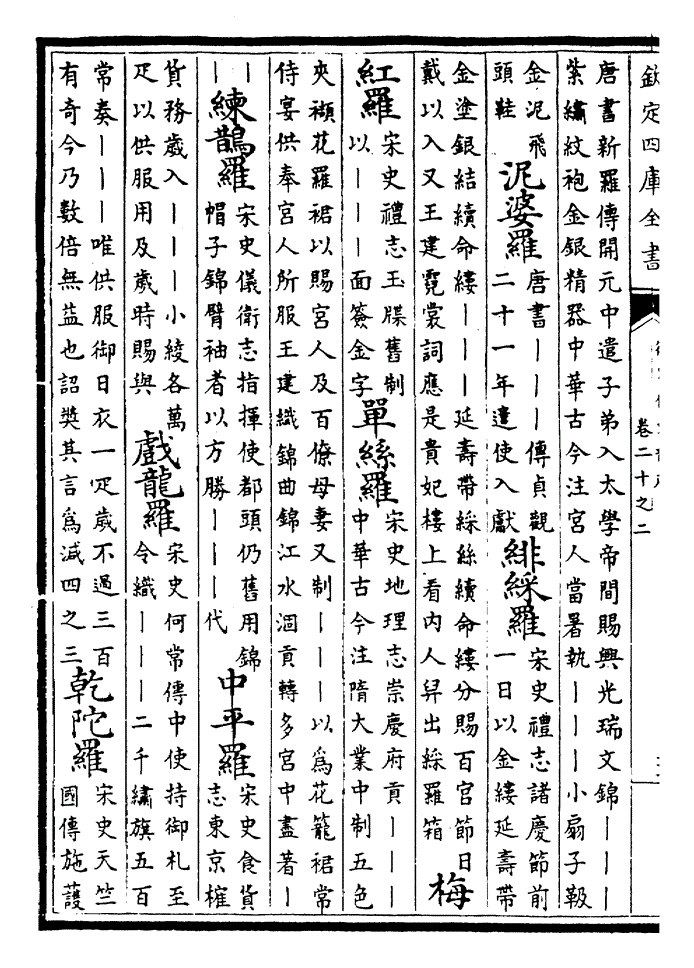 欽定四庫全書
卷二十之二
唐書新羅傳開元中遣子弟入太學帝間賜興光瑞文錦｜｜｜
紫繡紋袍金銀精器中華古今注宮人當署執｜｜｜小扇子靸
金泥飛
頭鞋
泥婆羅
唐書｜｜｜傳貞觀
二十一年遣使入獻
緋綵羅
宋史禮志諸慶節前
一日以金縷延壽帶
金塗銀結續命縷｜｜｜延壽帶綵絲續命縷分賜百官節日
戴以入又王建霓裳詞應是貴妃樓上看内人舁出綵羅箱
梅
紅羅
宋史禮志玉牒舊制
以｜｜｜面簽金字
單絲羅
宋史地理志崇慶府貢｜｜｜
中華古今注隋大業中制五色
夾纈花羅裙以賜宮人及百僚母妻又制｜｜｜以爲花籠裙常
侍宴供奉宮人所服王建織錦曲錦江水涸貢轉多宮中盡著｜
｜
｜
練鵲羅
宋史儀衛志指揮使都頭仍舊用錦
帽子錦臂袖者以方勝｜｜｜代
中平羅
宋史食貨
志東京榷
貨務歲入｜｜｜小綾各萬
疋以供服用及歲時賜與
戲龍羅
宋史何常傳中使持御札至
令織｜｜｜二千繡旗五百
常奏｜｜｜唯供服御日衣一疋歲不過三百
有奇今乃數倍無益也詔奬其言爲減四之三
乾陀羅
宋史天竺
國傳施護